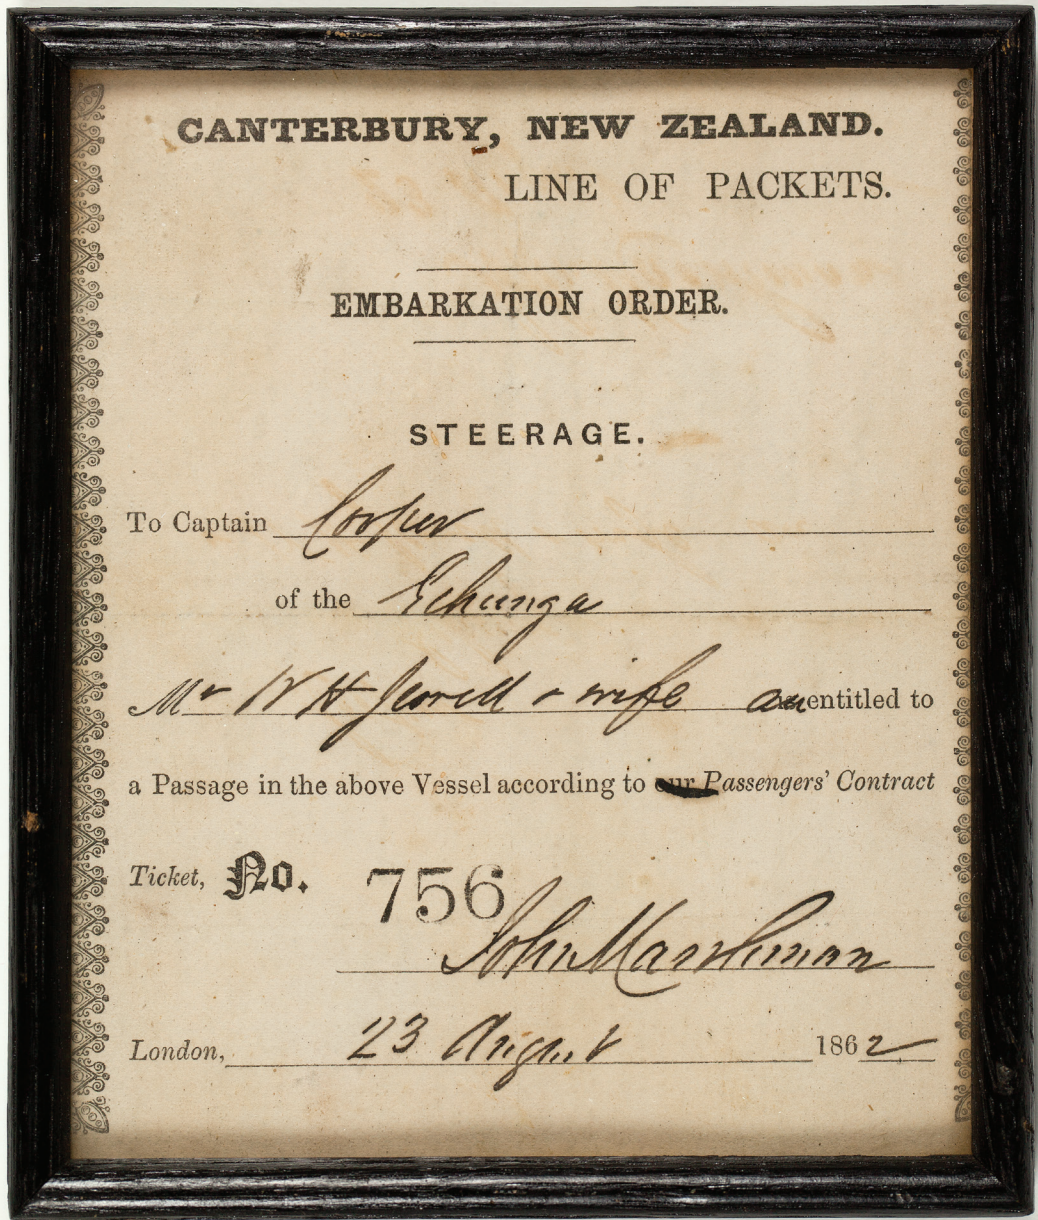 CANTERBURY, NEW ZEALAND.
LINE OF PACKETS.
EMBARKATION ORDER.
STEERAGE.
To Captain Cooper
of the Echunga
Mr W H Jewell & wife are entitled to
a Passage in the above Vessel according to our Passengers' Contract
Ticket, No. 756
John Marshman
London, 23 August 1862